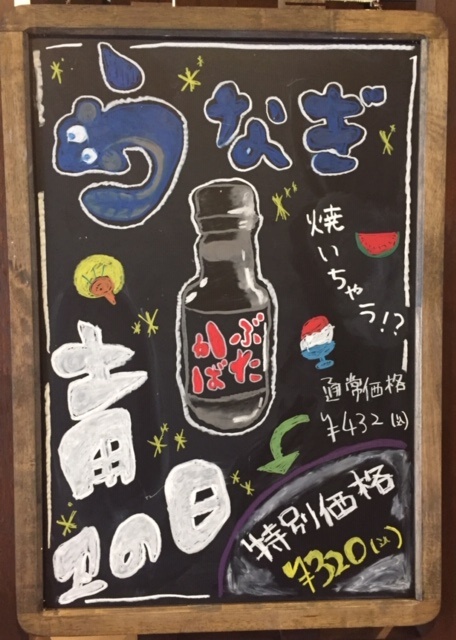 うなぎ
焼いちゃう!?
ぶた
かば
土用
丑の日
通常価格
¥432(込)
特別価格
¥320(込)